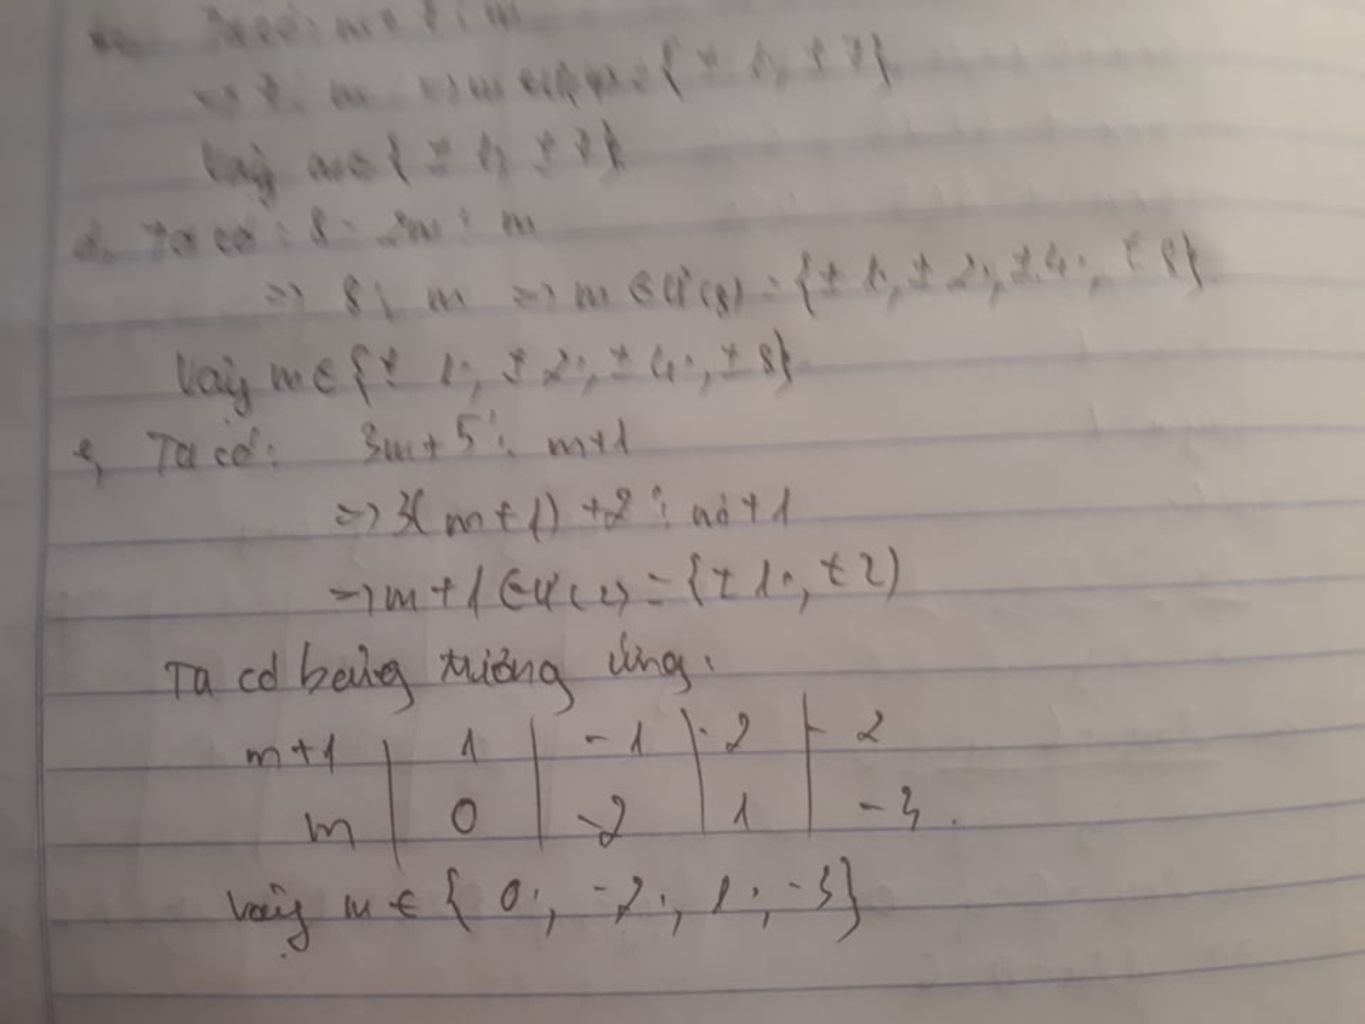 Ta có: m + 7 ⋮ m
=> 7 ⋮ m => m ∈ Ư(7) = {± 1; ± 7}
Vậy m ∈ {± 1; ± 7}
d, Ta có: 8 - 2m ⋮ m
=> 8 ⋮ m => m ∈ Ư(8) = {± 1; ± 2; ± 4; ± 8}
Vậy m ∈ {± 1; ± 2; ± 4; ± 8}
e, Ta có: 3m + 5 ⋮ m+1
=> 3(m+1) + 2 ⋮ m + 1
=> m + 1 ∈ Ư(2) = {± 1; ± 2)
Ta có bảng tương ứng:
m+1 | 1 | - 1 | 2 | - 2
m | 0 | -2 | 1 | -3.
Vậy m ∈ { 0; -2; 1; -3}